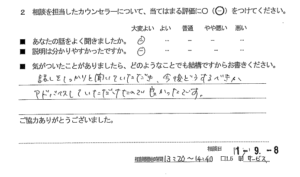 2 相談を担当したカウンセラーについて、当てはまる評価に○(○)をつけてください。
大変よい よい 普通 やや悪い 悪い
■ あなたの話をよく聞きましたか。
■ 説明は分かりやすかったですか。
■ 気がついたことがありましたら、どのようなことでも結構ですからお書きください。
話しをしっかりと聞いていただき、今後どうするべきか、
アドバイスしていただけたので良かったです。
ご協力ありがとうございました。
1-9.-8
13:20～14:40
サービス